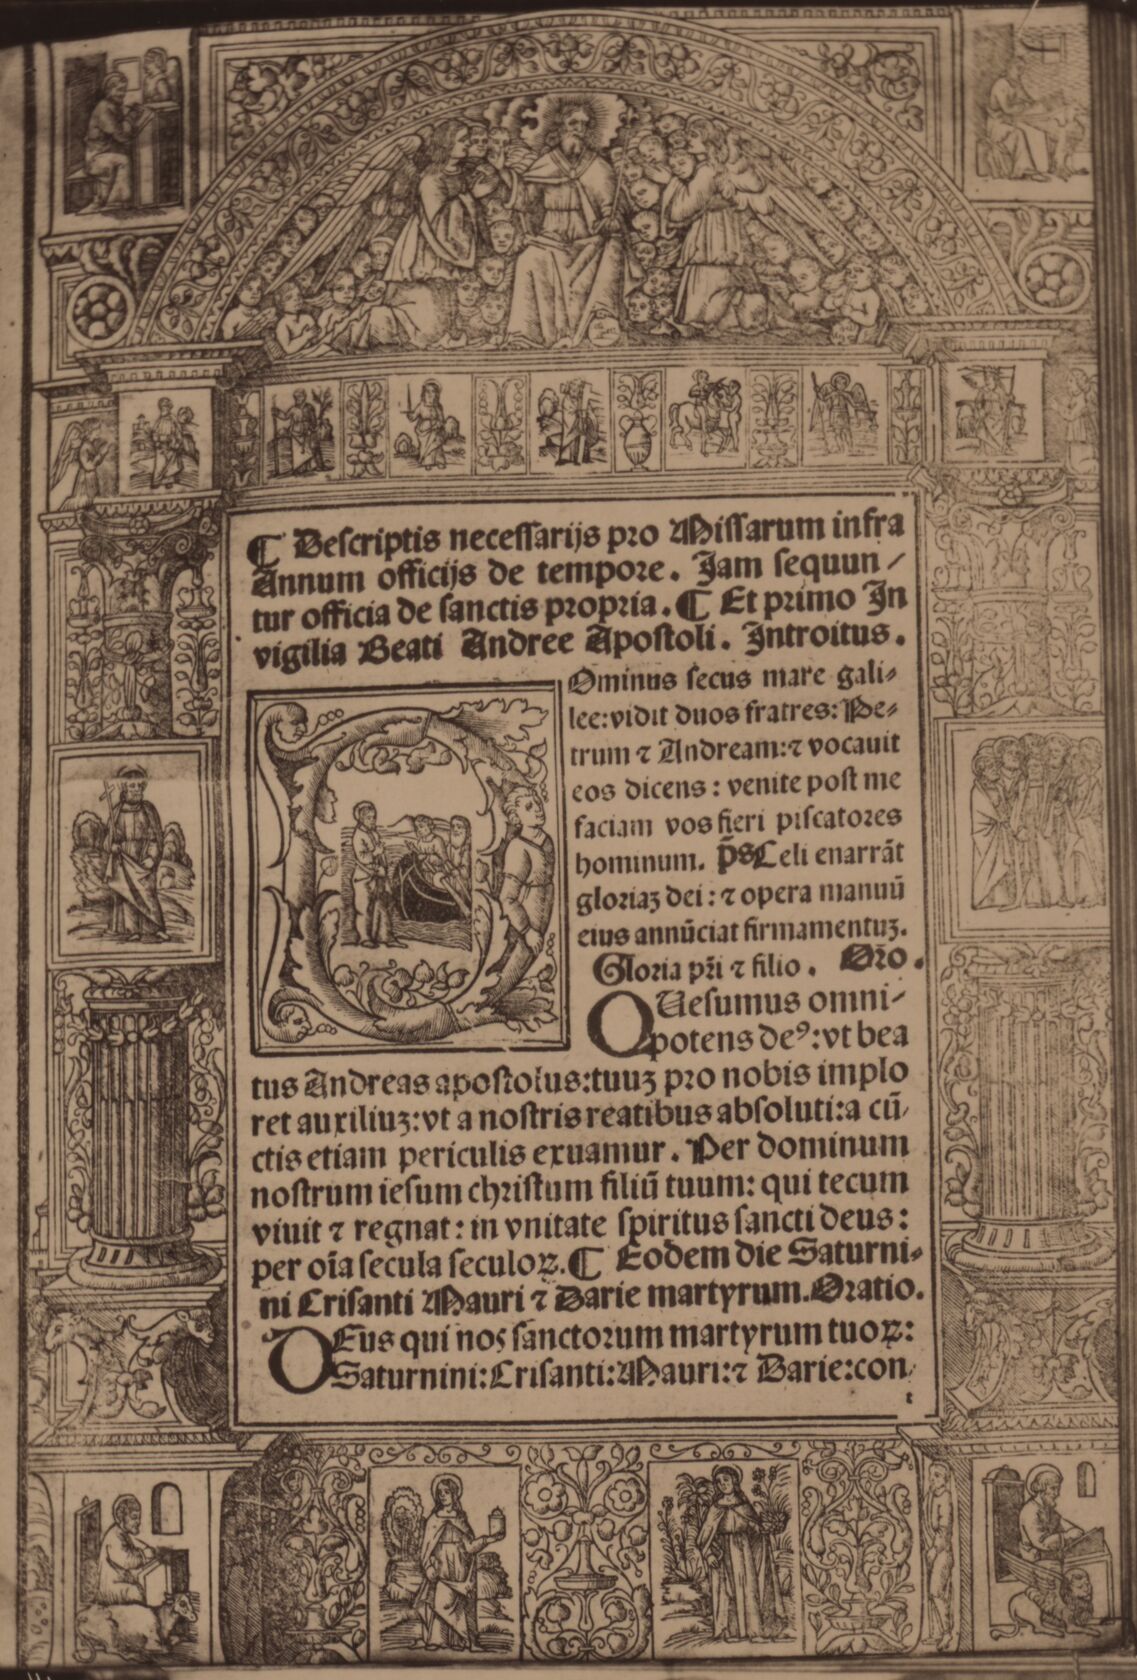 ¶ Descriptis necessarijs pro Missarum infra
Annum officijs de tempore. Jam sequun/
tur officia de sanctis propria. ¶ Et primo In
vigilia Beati Andree Apostoli. Introitus.
Ominus secus mare gali-
lee: vidit duos fratres: Pe-
trum ⁊ Andream: ⁊ vocauit
eos dicens: venite post me
faciam vos fieri piscatores
hominum. p̄s Celi enarrāt
gloriaꝫ dei: ⁊ opera manuū
eius annūciat firmamentuꝫ.
Gloria pr̄i ⁊ filio. Oro.
QUesumus omni-
potens deꝰ: vt bea
tus Andreas apostolus: tuuꝫ pro nobis implo
ret auxiliuꝫ: vt a nostris reatibus absoluti: a cū/
ctis etiam periculis exuamur. Per dominum
nostrum iesum christum filiū tuum: qui tecum
viuit ⁊ regnat: in vnitate spiritus sancti deus:
per oīa secula seculoꝝ. ¶ Eodem die Saturni-
ni Crisanti Mauri ⁊ Darie martyrum. Oratio.
DEus qui nos sanctorum martyrum tuoꝝ:
Saturnini: Crisanti: Mauri: ⁊ Darie: con/
t